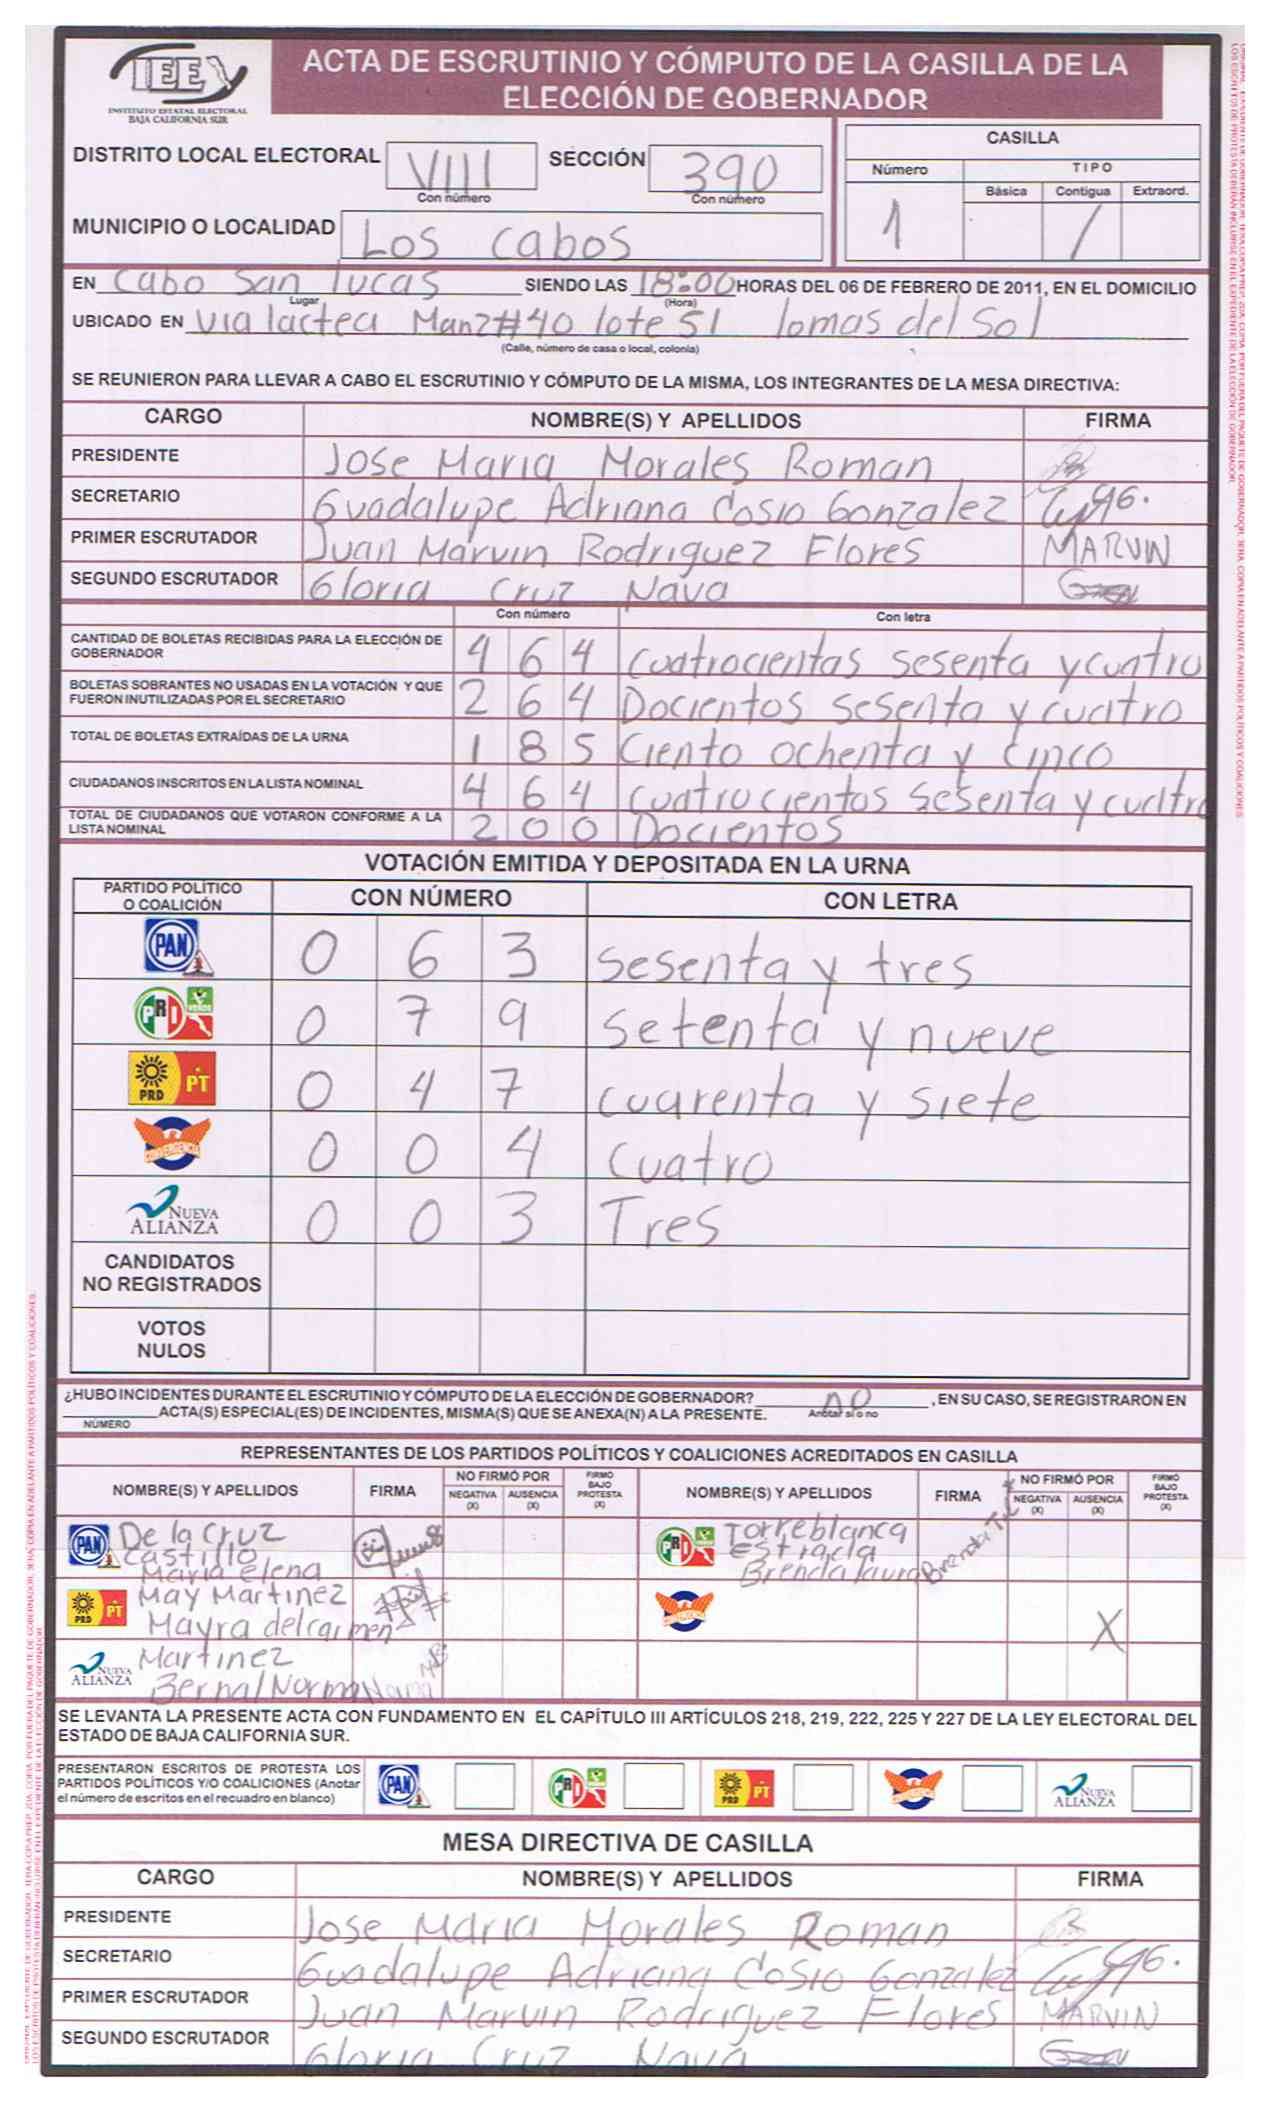 IEE
INSTITUTO ESTATAL ELECTORAL
BAJA CALIFORNIA SUR
ACTA DE ESCRUTINIO Y CÓMPUTO DE LA CASILLA DE LA
ELECCIÓN DE GOBERNADOR
DISTRITO LOCAL ELECTORAL VIII SECCIÓN 390
Con número Con número
MUNICIPIO O LOCALIDAD Los Cabos
CASILLA
Número TIPO
Básica Contigua Extraord.
1 /
EN Cabo San Lucas SIENDO LAS 18:00 HORAS DEL 06 DE FEBRERO DE 2011, EN EL DOMICILIO
Lugar (Hora)
UBICADO EN Via lactea Manz#40 lote 51 lomas del Sol
(Calle, número de casa o local, colonia)
SE REUNIERON PARA LLEVAR A CABO EL ESCRUTINIO Y CÓMPUTO DE LA MISMA, LOS INTEGRANTES DE LA MESA DIRECTIVA:
CARGO NOMBRE(S) Y APELLIDOS FIRMA
PRESIDENTE Jose Maria Morales Roman
SECRETARIO Guadalupe Adriana Cosio Gonzalez
PRIMER ESCRUTADOR Juan Marvin Rodriguez Flores MARVIN
SEGUNDO ESCRUTADOR Gloria Cruz Nava
Con número Con letra
CANTIDAD DE BOLETAS RECIBIDAS PARA LA ELECCIÓN DE
GOBERNADOR 4 6 4 Cuatrocientas sesenta y cuatro
BOLETAS SOBRANTES NO USADAS EN LA VOTACIÓN Y QUE
FUERON INUTILIZADAS POR EL SECRETARIO 2 6 4 Docientos sesenta y cuatro
TOTAL DE BOLETAS EXTRAÍDAS DE LA URNA 1 8 5 Ciento ochenta y cinco
CIUDADANOS INSCRITOS EN LA LISTA NOMINAL 4 6 4 Cuatrocientos sesenta y cuatro
TOTAL DE CIUDADANOS QUE VOTARON CONFORME A LA
LISTA NOMINAL 2 0 0 Docientos
VOTACIÓN EMITIDA Y DEPOSITADA EN LA URNA
PARTIDO POLÍTICO
O COALICIÓN CON NÚMERO CON LETRA
PAN 0 6 3 sesenta y tres
PRI VERDE 0 7 9 setenta y nueve
PRD PT 0 4 7 cuarenta y siete
CONVERGENCIA 0 0 4 cuatro
NUEVA ALIANZA 0 0 3 Tres
CANDIDATOS
NO REGISTRADOS
VOTOS
NULOS
¿HUBO INCIDENTES DURANTE EL ESCRUTINIO Y CÓMPUTO DE LA ELECCIÓN DE GOBERNADOR? no , EN SU CASO, SE REGISTRARON EN
ACTA(S) ESPECIAL(ES) DE INCIDENTES, MISMA(S) QUE SE ANEXA(N) A LA PRESENTE. Anotar si o no
NÚMERO
REPRESENTANTES DE LOS PARTIDOS POLÍTICOS Y COALICIONES ACREDITADOS EN CASILLA
NOMBRE(S) Y APELLIDOS FIRMA NO FIRMÓ POR NEGATIVA (X) AUSENCIA (X) FIRMÓ BAJO PROTESTA (X) NOMBRE(S) Y APELLIDOS FIRMA NO FIRMÓ POR NEGATIVA (X) AUSENCIA (X) FIRMÓ BAJO PROTESTA (X)
PAN De la Cruz
Castillo
Maria elena
PRI VERDE Torreblanca
Estrada
Brenda laura
PRD PT May Martinez
Mayra del carmen
CONVERGENCIA X
NUEVA ALIANZA Martinez
Bernal Norma
SE LEVANTA LA PRESENTE ACTA CON FUNDAMENTO EN EL CAPÍTULO III ARTÍCULOS 218, 219, 222, 225 Y 227 DE LA LEY ELECTORAL DEL
ESTADO DE BAJA CALIFORNIA SUR.
PRESENTARON ESCRITOS DE PROTESTA LOS
PARTIDOS POLÍTICOS Y/O COALICIONES (Anotar
el número de escritos en el recuadro en blanco)
PAN PRI VERDE PRD PT CONVERGENCIA NUEVA ALIANZA
MESA DIRECTIVA DE CASILLA
CARGO NOMBRE(S) Y APELLIDOS FIRMA
PRESIDENTE Jose Maria Morales Roman
SECRETARIO Guadalupe Adriana Cosio Gonzalez
PRIMER ESCRUTADOR Juan Marvin Rodriguez Flores MARVIN
SEGUNDO ESCRUTADOR Gloria Cruz Nava